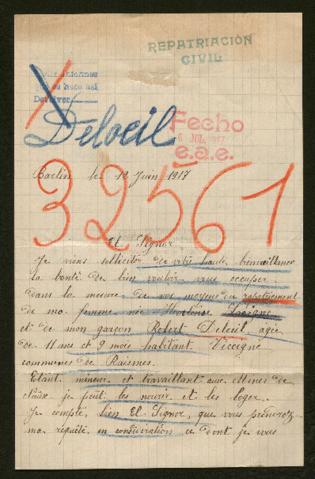 REPATRIACIÓN
CIVIL
Deloeil
Fecho
JUL. 1917
e.a.e.
32561
le 12 Juin 1917
El Signor
Je viens solliciter de votre haute bienveillance
la bonté de bien vouloir vous occuper
dans la mesure de vos moyens du rapatriement
de ma femme née
et de mon garçon Robert Deloeil, agé
de 11 ans et 9 mois habitant Vicoigne
commune de Raismes.
Etant mineur et travaillant aux Mines de
je peut les nourir et les loger.
Je compte, bien El Signor, que vous prénerez
ma requête en considération ce dont je vous